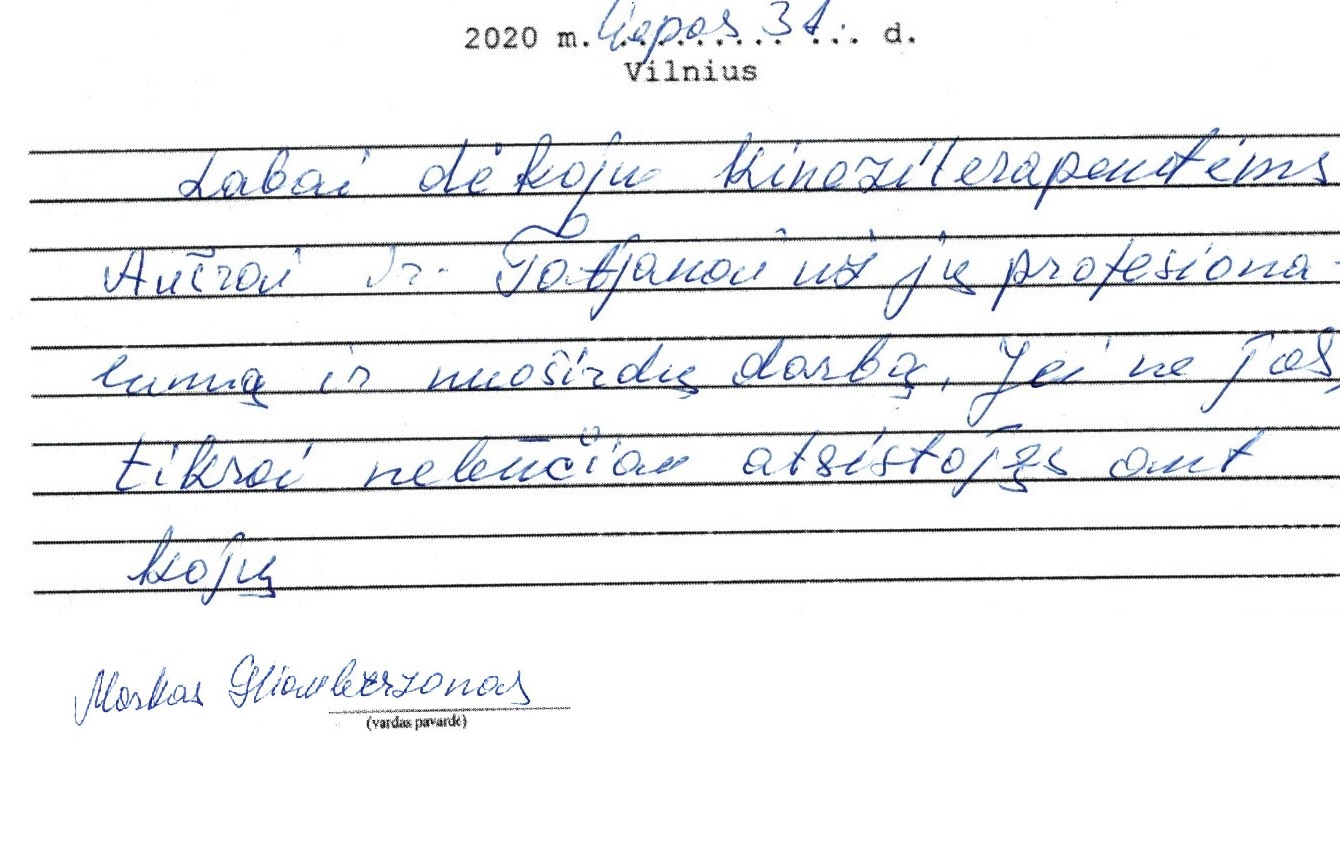 2020 m. liepos 31 d.
Vilnius
Labai dėkoju kineziterapeutėms
Aušrai ir Tatjanai už jų profesiona-
lumą ir nuoširdų darbą. Jei ne jos,
tikrai nebūčiau atsistojęs ant
kojų
Markas
(vardas pavardė)